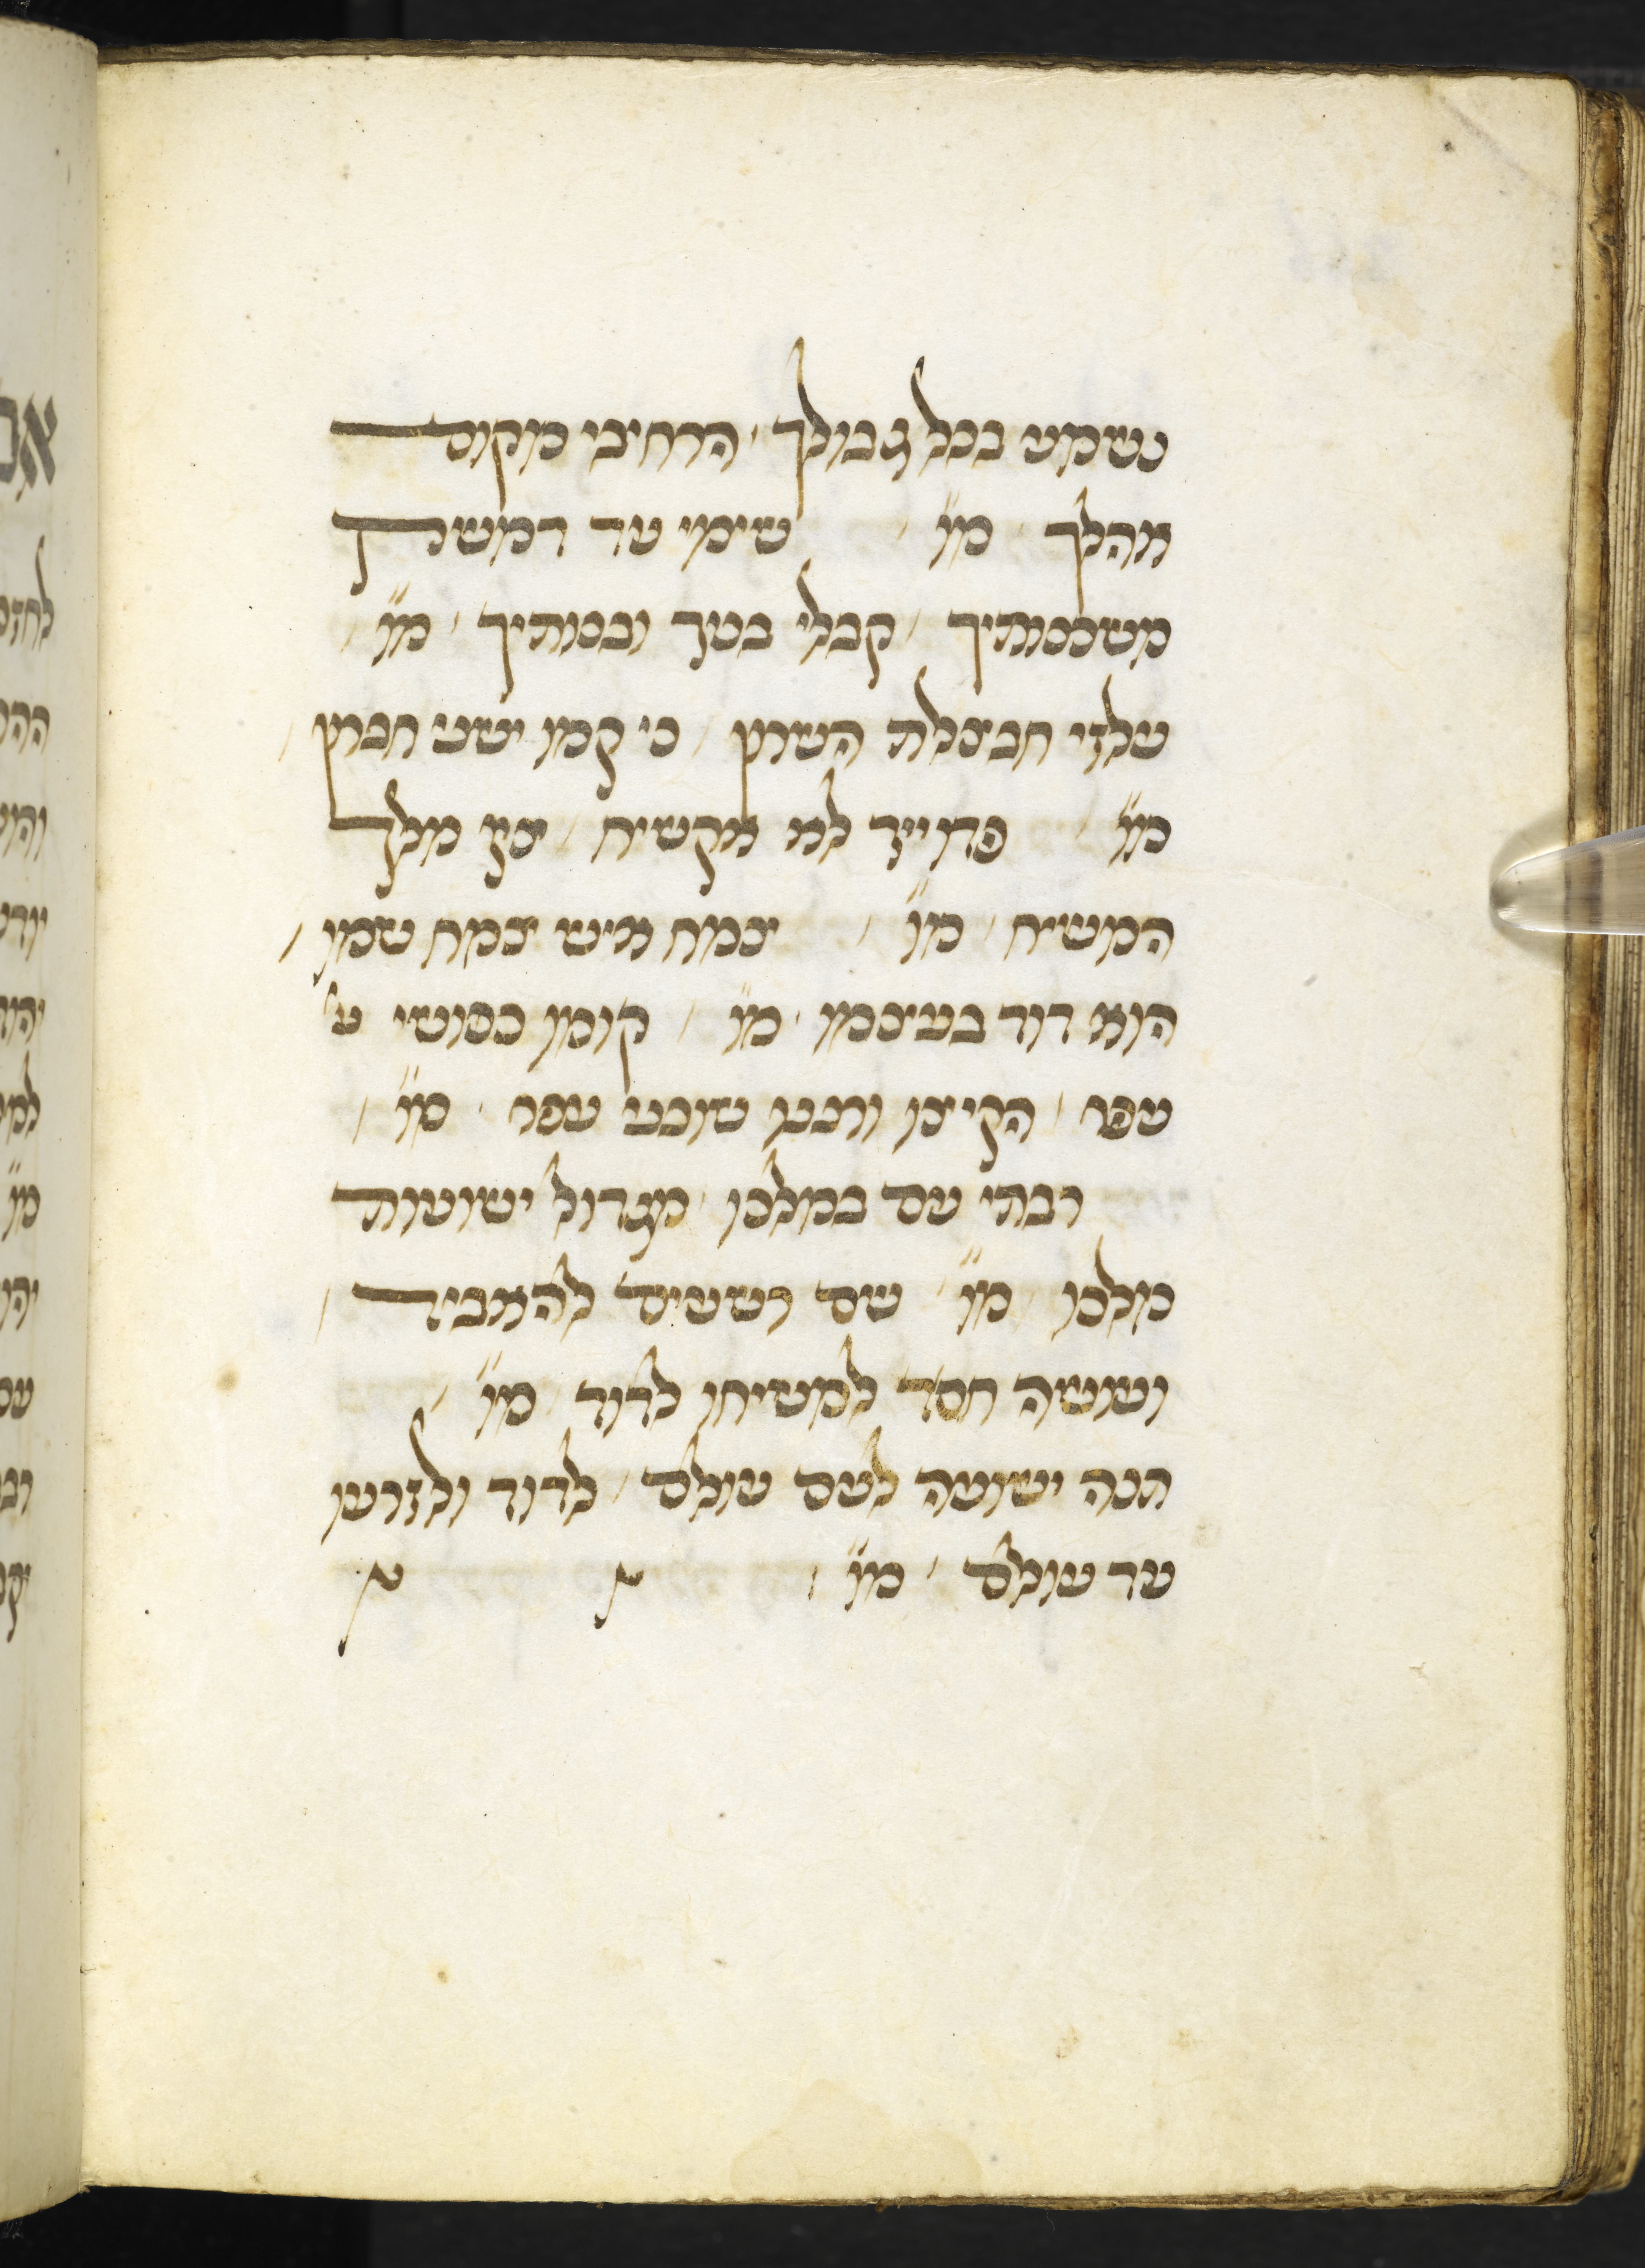 נשמע בכל גבולך / הרחיבי מקום
אהלך / מו״ / שימי עד דמשק
משכנותיך / קבלי בניך ובנותיך / מו״ /
עלזי חבצלת השרון / כי קמו ישני חברון /
מו״ / פדוייך לא אקשיח / צץ מלך
המשיח / מו״ / צמח איש צמח שמו /
הוא דוד בעצמו / מו״ / קומו כפושי ע׳
עפר / הקיצו ורננו שוכני עפר / מו״ /
רבתי עם במלכו / מגדול ישועות
מלכו / מו״ / שם רשעים להאביד /
ועושה חסד למשיחו לדוד / מו״ /
תנה ישועה לעם עולם / לדוד ולזרעו
עד עולם / מו״ /